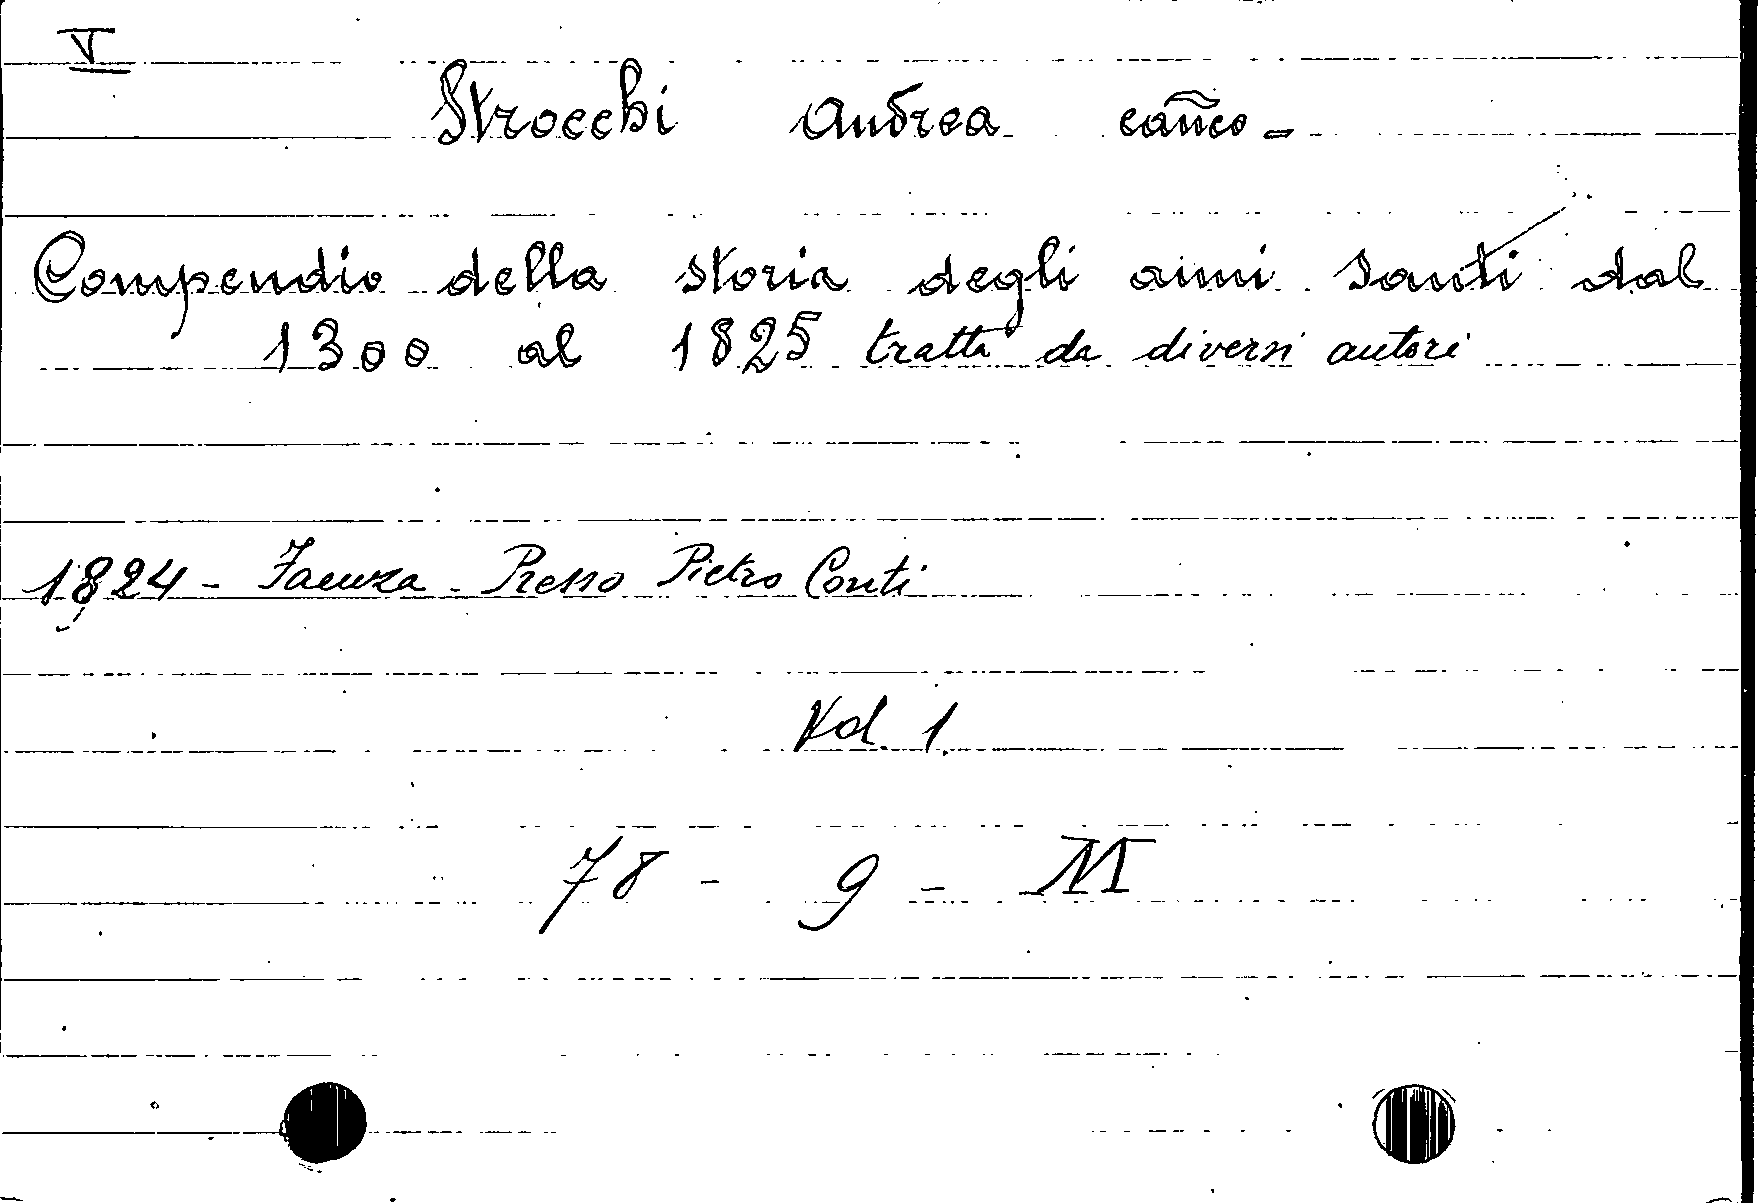 V
Strocchi Andrea cañco -
Compendio della storia degli anni santi dal
1300 al 1825 tratta da diversi autori
1824 - Faenza - Presso Pietro Conti
Vol. 1
78 - 9 - M